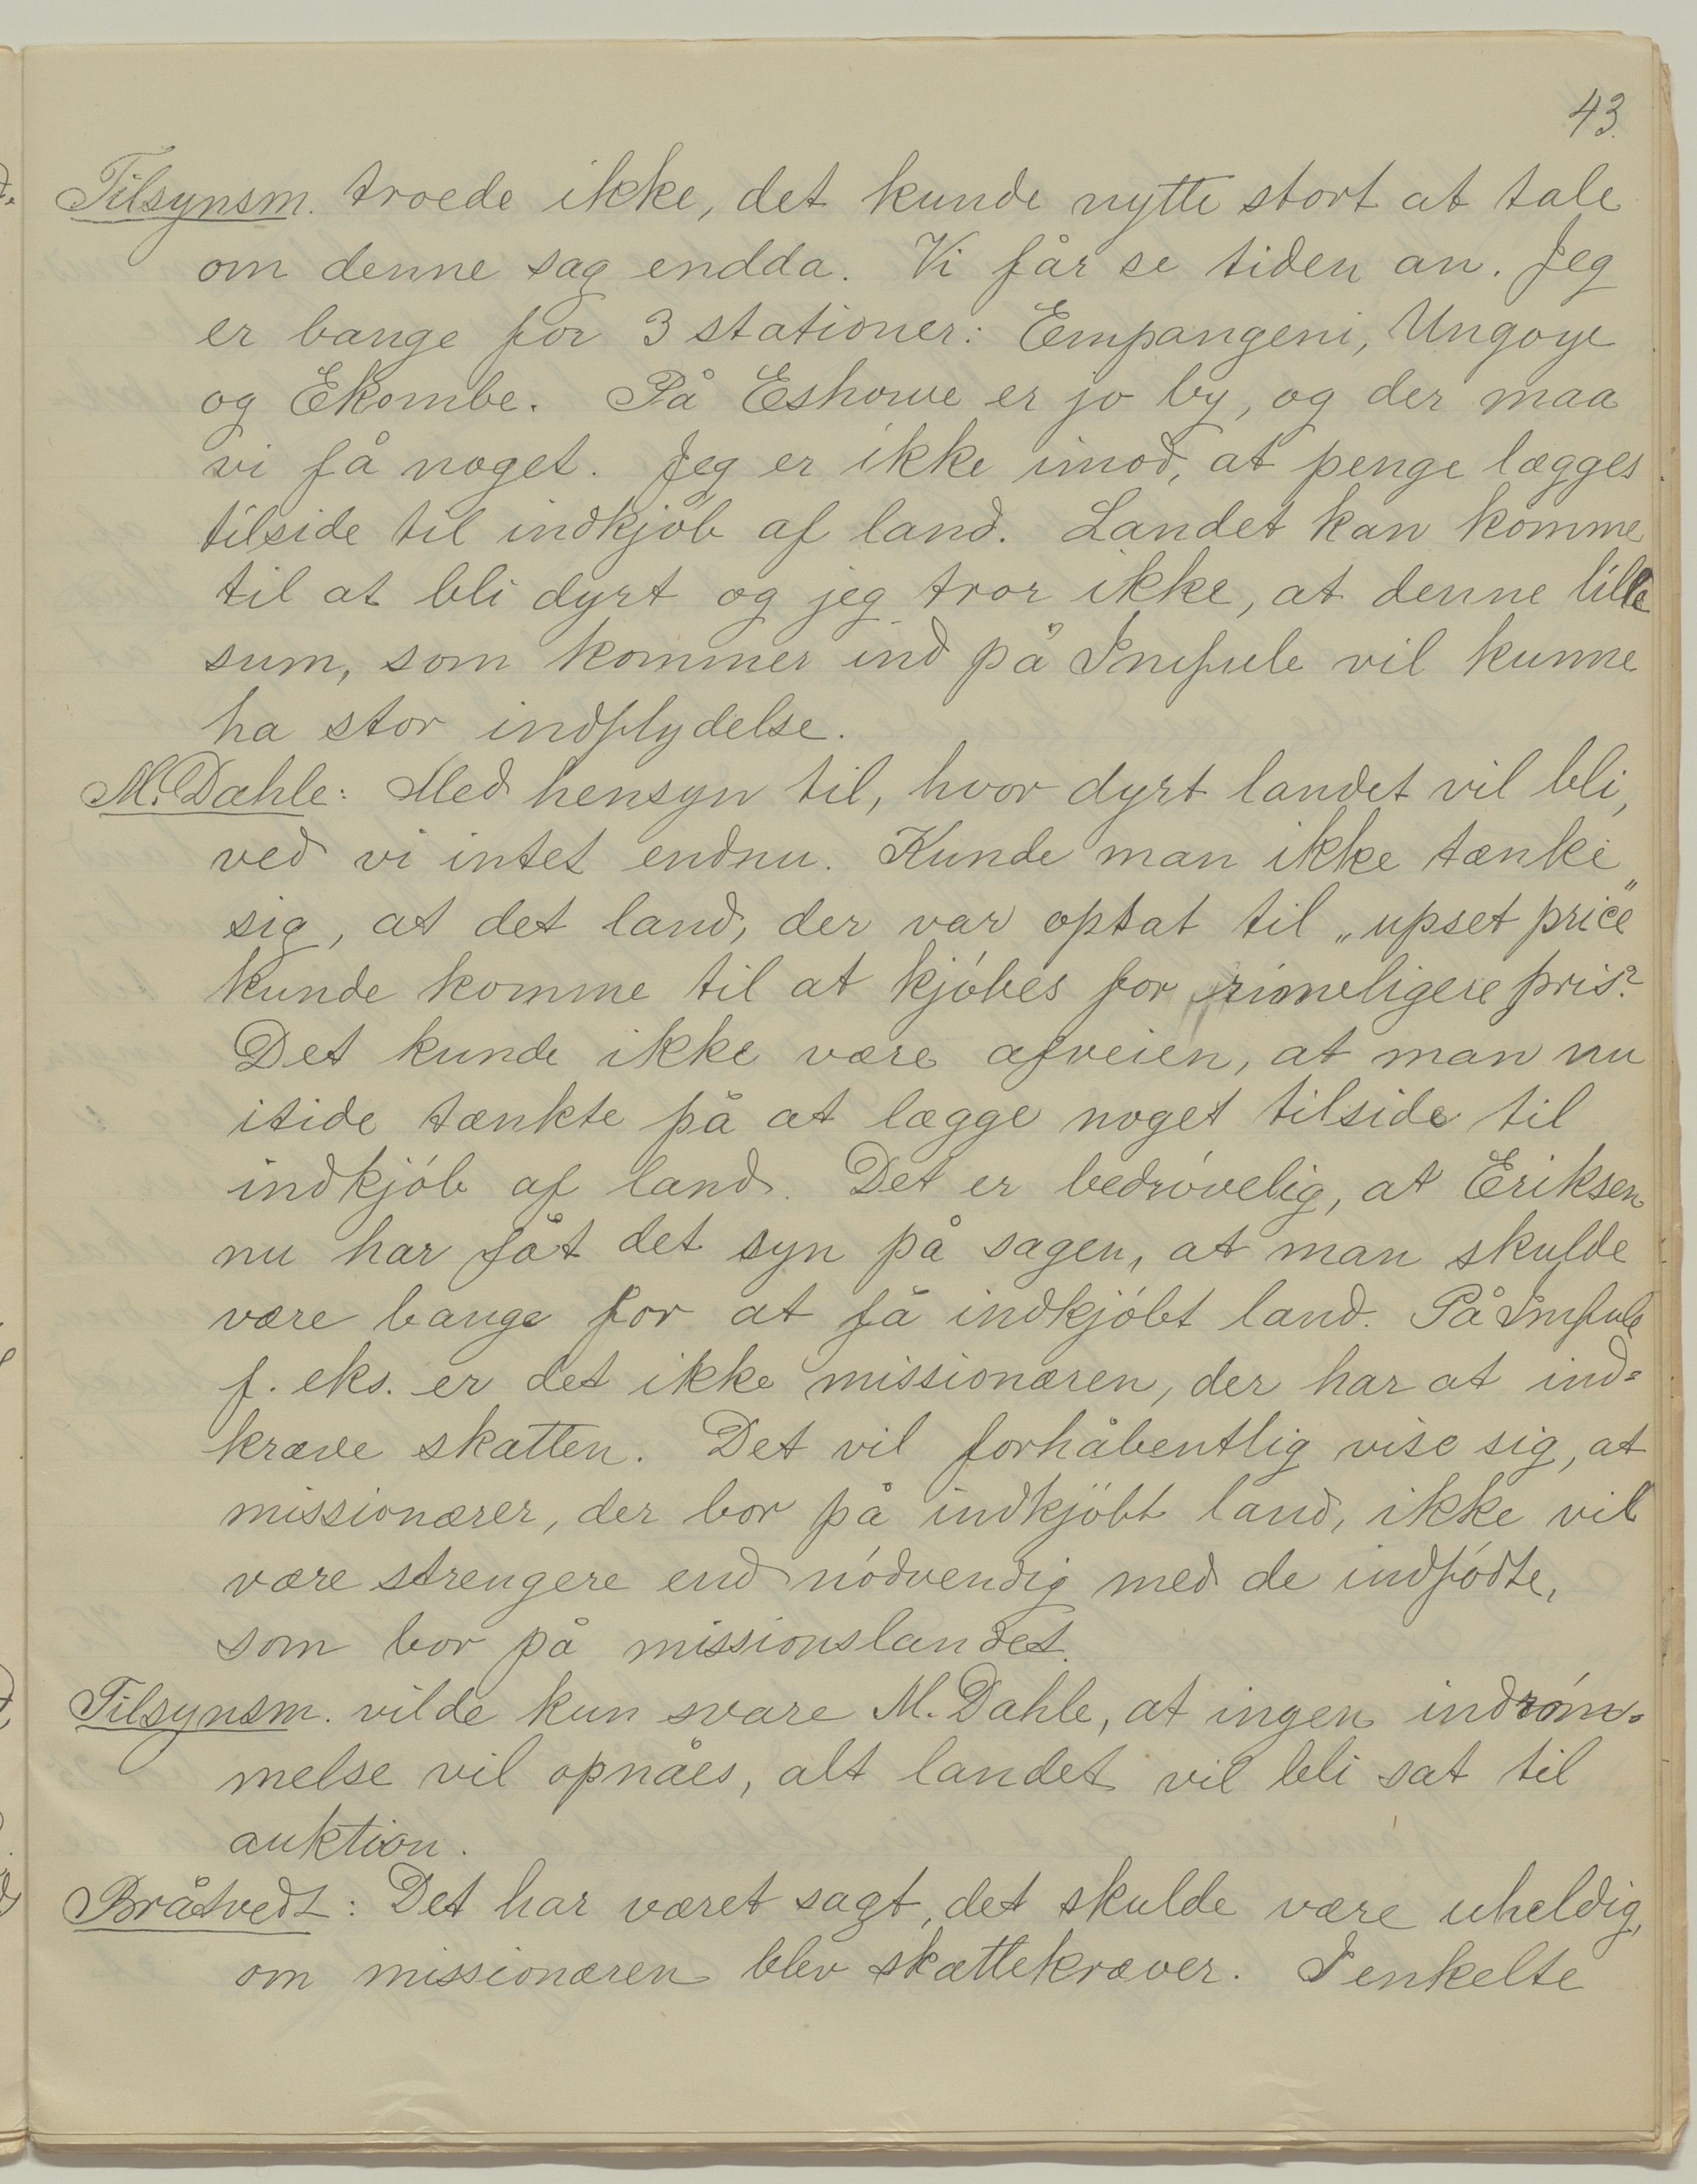 43.
Tilsynsm. troede ikke, det kunde nytte stort at tale
om denne sag endda. Vi får se tiden an. Jeg
er bange for 3 stationer: Empangeni, Ungoye
og Ekombe. På Eshowe er jo by, og der maa
vi få noget. Jeg er ikke imod, at penge lægges
tilside til indkjöb af land. Landet kan komme
til at bli dyrt og jeg tror ikke, at denne lille
sum, som kommer ind på Imfule vil kunne
ha stor indflydelse.
M. Dahle: Med hensyn til, hvor dyrt landet vil bli,
ved vi intet endnu. Kunde man ikke tænke
sig, at det land, der var optat til „upset price"
kunde komme til at kjóbes for rimeligere pris?
Det kunde ikke være afveien, at man nu
itide tænkte på at lægge noget tilside til
indkjób af land. Det er bedróvelig, at Eriksen
nu har fåt det syn på sagen, at man skulde
være bange for at få indkjóbt land. På Imfule
f. eks. er det ikke missionæren, der har at ind=
kræve skatten. Det vil forhåbentlig vise sig, at
missionærer, der bor på indkjöbt land, ikke vil
være strengere end nódvendig med de indfódte,
som bor på missionslandet.
Tilsynsm. vilde kun svare M. Dahle, at ingen indróm=
melse vil opnåes, alt landet vil bli sat til
auktion.
Bråtvedt: Det har været sagt, det skulde være uheldig,
om missionæren blev skattekræver. I enkelte